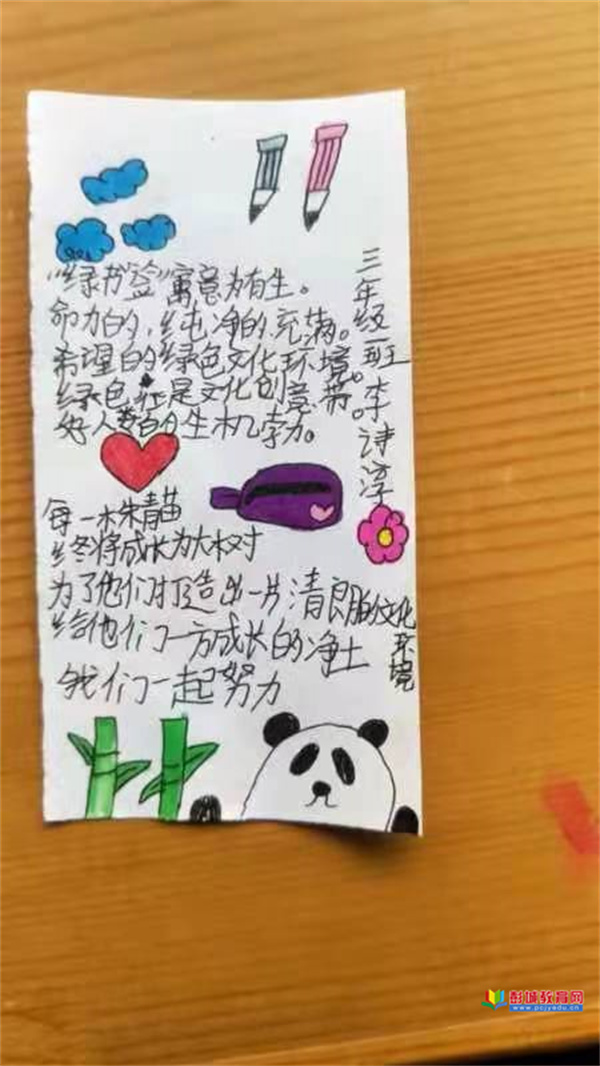 “绿书签”寓意为有生。
命力的，纯净的充满。
希望的绿色文化环境。
绿色，征是文化创意带。
好人教百分生机孛力。
三年级一班。李诗淳
每一木株青苗
终将成长为大木对
为了他们打造出一片清朗的文化环境
给他们一方成长的净土
我们一起努力
彭城教育网
www.pcjyedu.cn